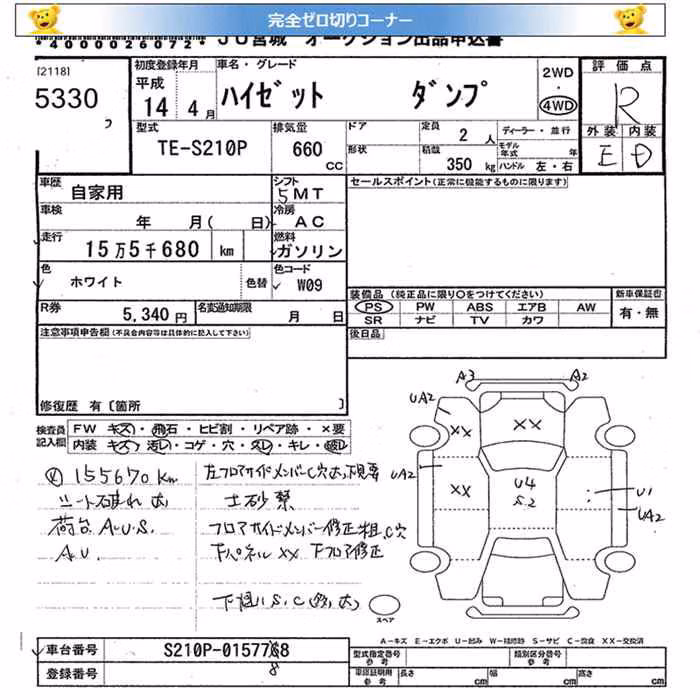 完全ゼロ切りコーナー
*4000026072* JU宮城 オークション出品申込書
[2118]
5330
初度登録年月
平成
14年 4月
車名・グレード
ハイゼット ダンプ
2WD
・
4WD
評価点
R
外装 内装
E D
型式
TE-S210P
排気量
660 CC
ドア
形状
定員 2 人
積載 350 kg
ディーラー・並行
モデル年式 年
ハンドル 左・右
車歴 自家用
シフト 5MT
セールスポイント(正常に機能するものに限ります)
車検 年 月( 日)
冷房 AC
走行 15万5千680 km
燃料 ガソリン
色 ホワイト 色替
色コード W09
装備品 (純正品に限り○をつけてください)
新車保証書
PS PW ABS エアB AW
有・無
SR ナビ TV カワ
R券 5,340円
名変通知期限 月 日
後日品
注意事項申告欄(不具合内容等は具体的に記入して下さい)
修復歴 有〔箇所 〕
検査員記入欄
FW キズ・飛石・ヒビ割・リペア跡・×要
内装 キズ・汚レ・コゲ・穴・スレ・キレ・破レ
155670km
シート破れ大
荷台A.U.S.
A.U.
左フロアサイドメンバーC穴大、下見要
土砂禁
フロアサイドメンバー修正粗、C穴
下パネルXX 下フロア修正
下廻りS.C(多、大)
A3 A2
UA2
XX XX
UA2 XX
U4
S2
U1
UA2
スペア
A-キズ E-エクボ U-凹み W-補修跡 S-サビ C-腐食 XX-交換済
車台番号 S210P-0157768
8
登録番号
型式指定番号 参考
類別区分番号 参考
車庫証明用 参考
長さ cm 幅 cm 高さ cm